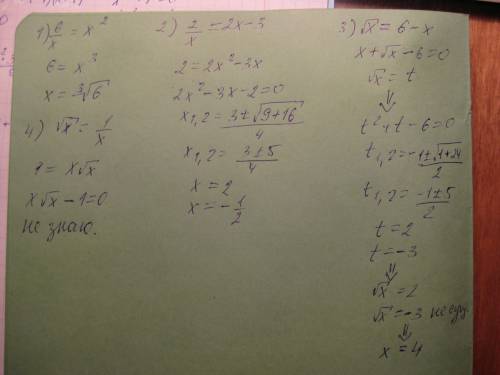 1) 6/x = x²
6 = x³
x = ³√6
4) √x = 1/x
1 = x√x
x√x − 1 = 0
не знаю.
2) 2/x = 2x − 3
2 = 2x² − 3x
2x² − 3x − 2 = 0
x₁,₂ = (3 ± √(9 + 16))/4
x₁,₂ = (3 ± 5)/4
x = 2
x = −1/2
3) √x = 6 − x
x + √x − 6 = 0
√x = t
⇓
t² + t − 6 = 0
t₁,₂ = (−1 ± √(1 + 24))/2
t₁,₂ = (−1 ± 5)/2
t = 2
t = −3
⇓
√x = 2
√x = −3 не сущ.
⇓
x = 4